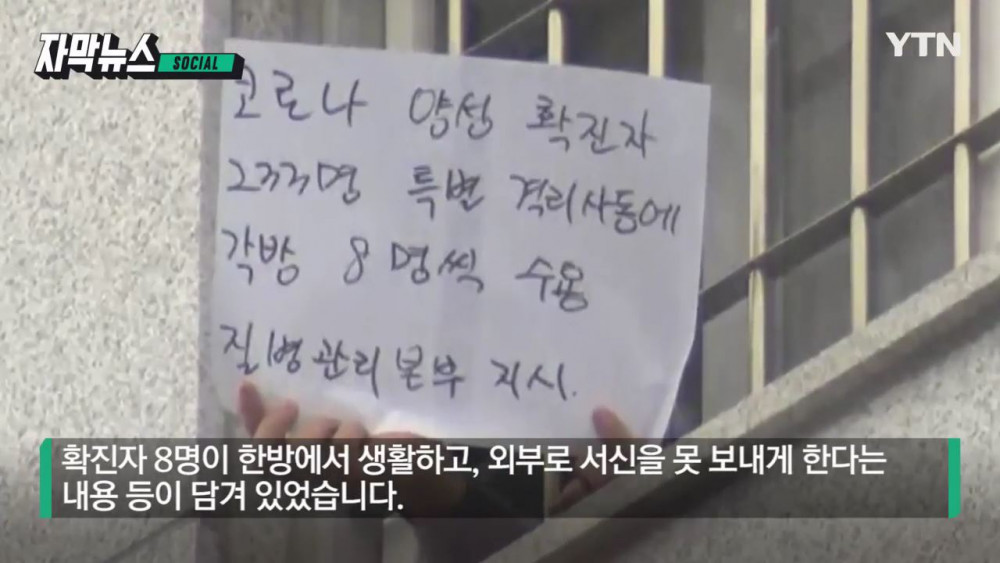 자막뉴스
SOCIAL
YTN
코로나 양성 확진자
233명 특별 격리사동에
각방 8명씩 수용
질병관리본부 지시.
확진자 8명이 한방에서 생활하고, 외부로 서신을 못 보내게 한다는
내용 등이 담겨 있었습니다.